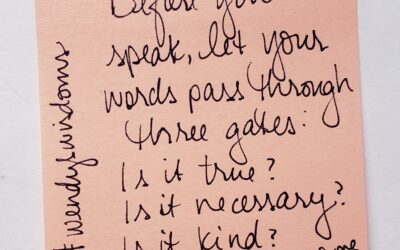 Before you
speak, let your
words pass through
three gates:
Is it true?
Is it necessary?
Is it kind?
#wendyswisdoms